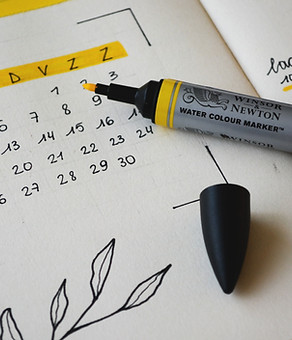 D V Z Z
1 2 3
6 7 8 9
13 14 15 16 17
20 21 22 23 24
26 27 28 29 30
WINSOR
& NEWTON
WATER COLOUR MARKER™
WINSOR